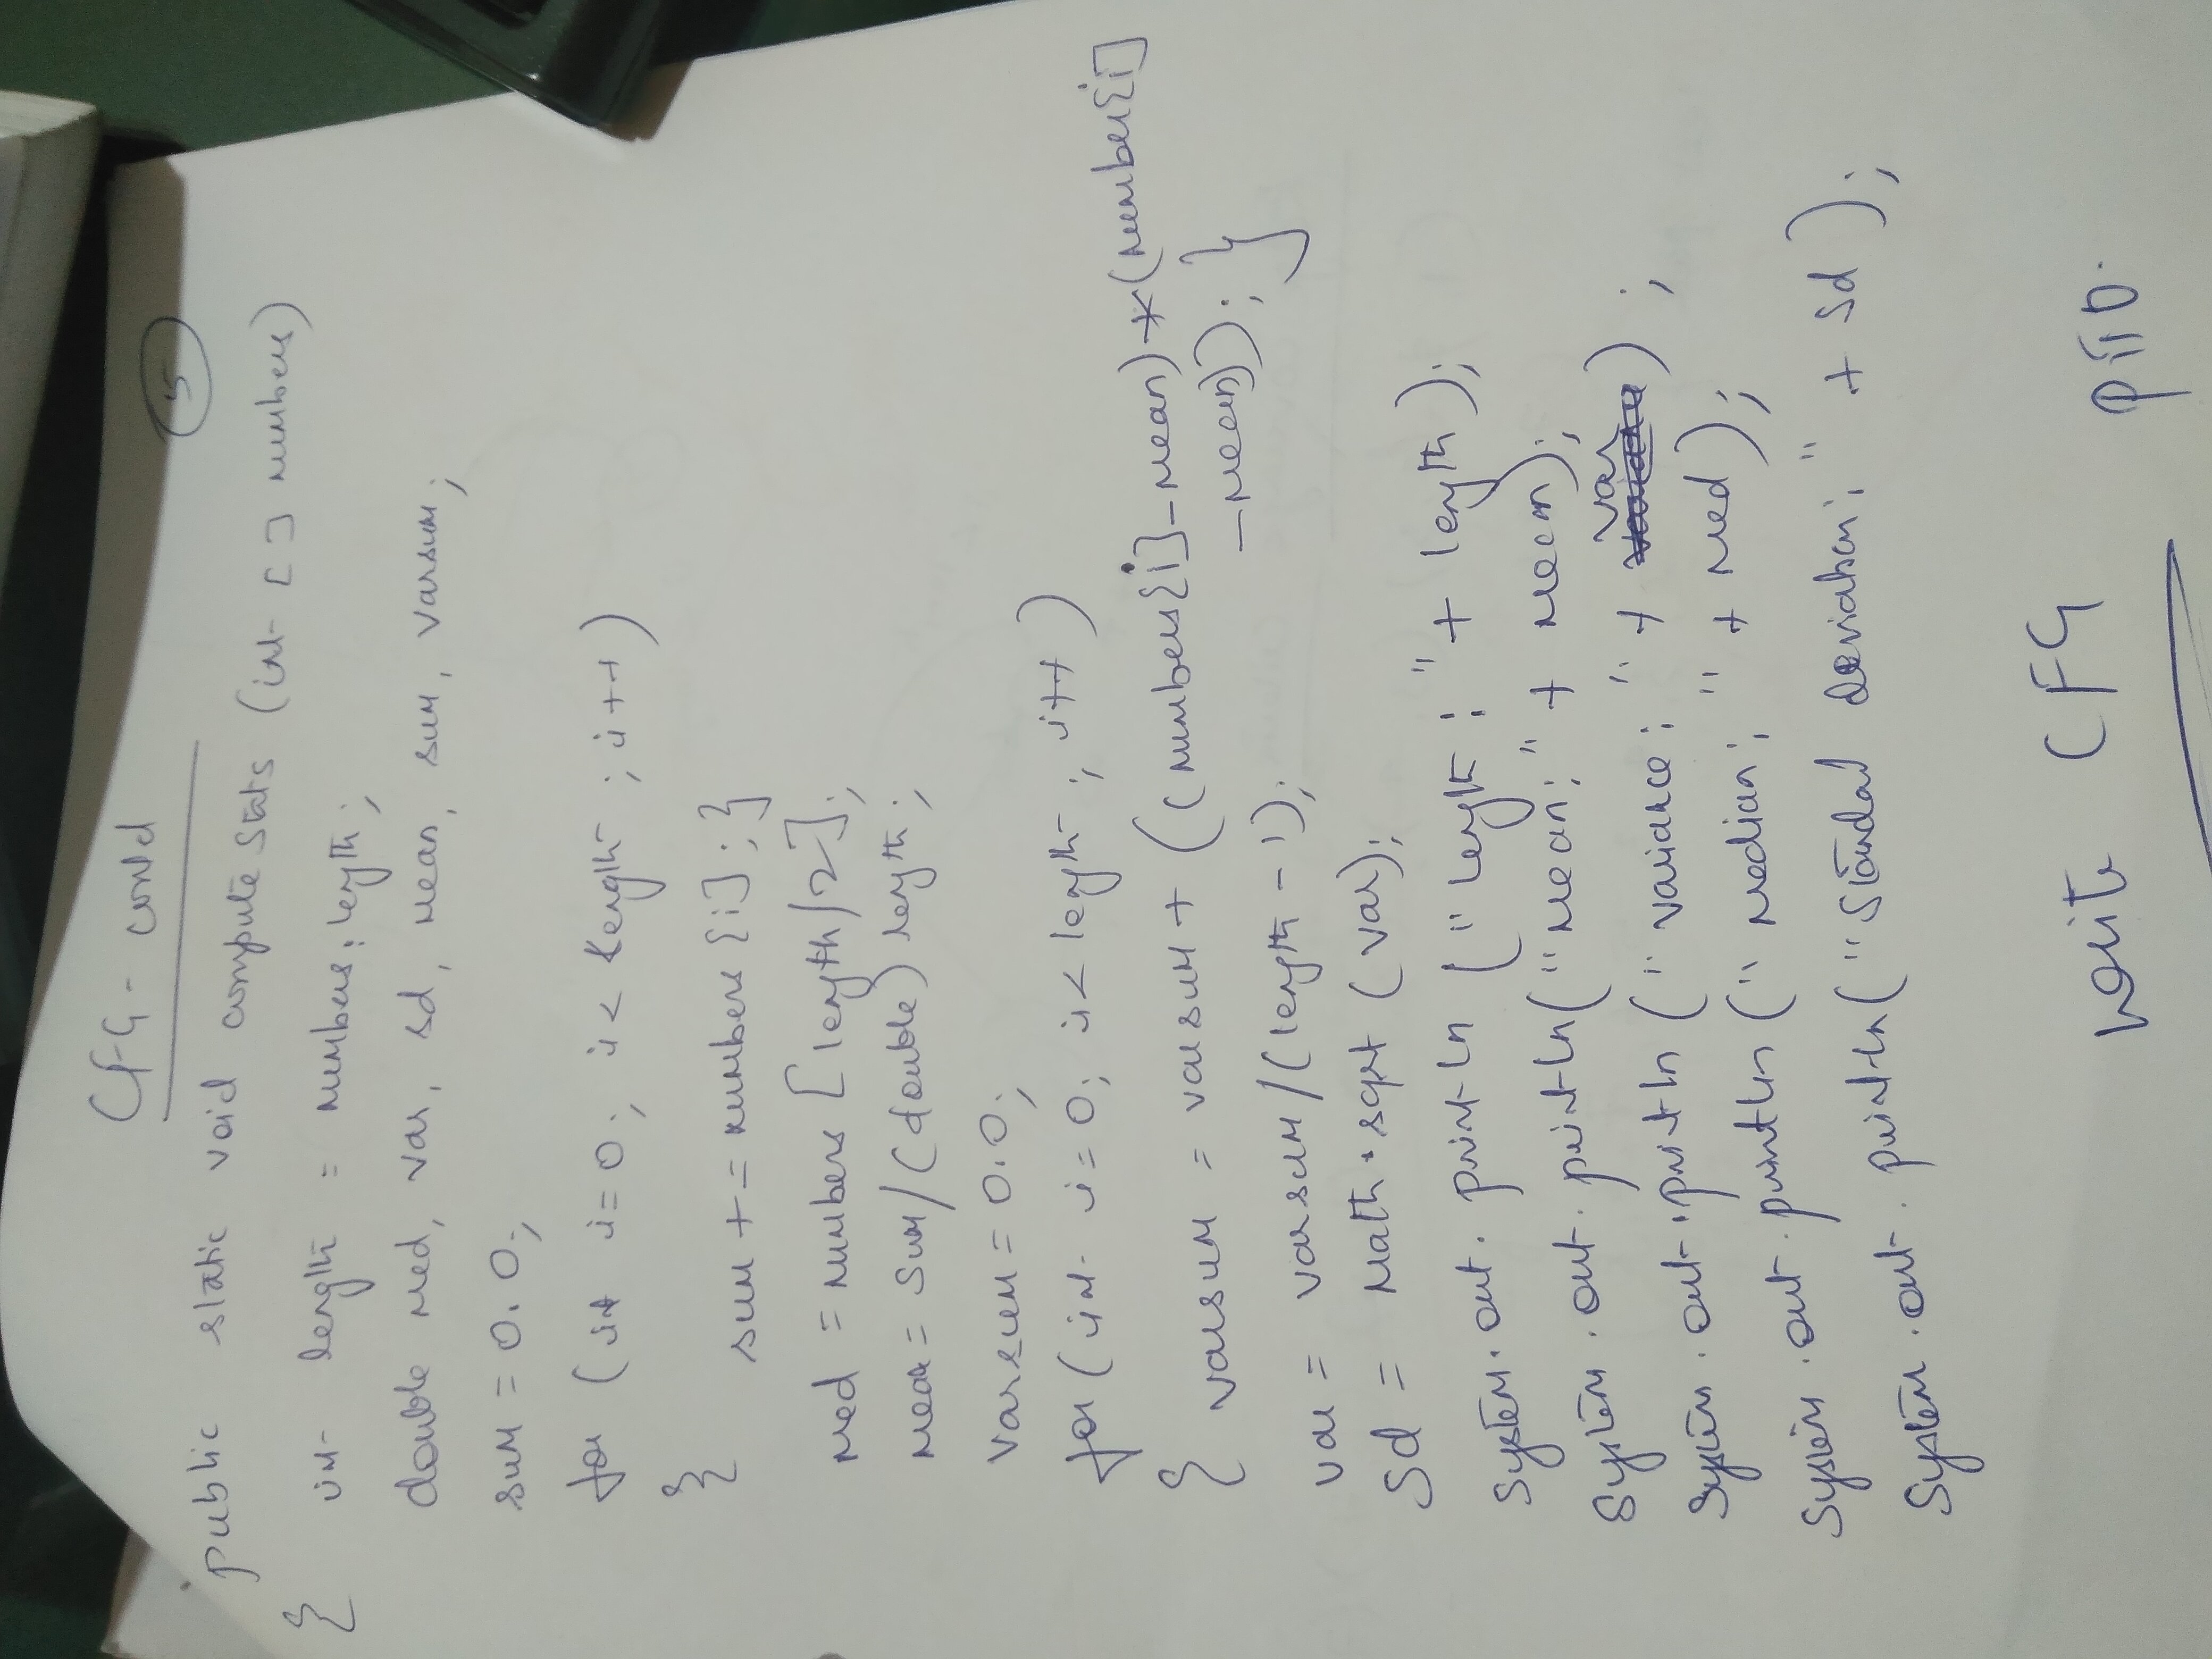 CFG - contd
5
public static void compute Stats (int [ ] numbers)
{ int length = numbers.length;
double med, var, sd, mean, sum, varsum;
sum = 0.0;
for (int i=0; i< length ; i++)
{
sum += numbers [i]; }
med = numbers [length/2];
mean = sum/(double) length;
varsum = 0.0;
for (int i=0; i< length ; i++)
{ varsum = varsum + ((numbers[i]-mean)*(number[i]
-mean)); }
var = varsum/(length-1);
sd = Math.sqrt (var);
System.out.println ("length: " + length);
System.out.println ("mean: " + mean);
System.out.println ("variance: " + var) ;
System.out.println ("median: " + med);
System.out.println ("Standard deviation: " + sd );
write CFG